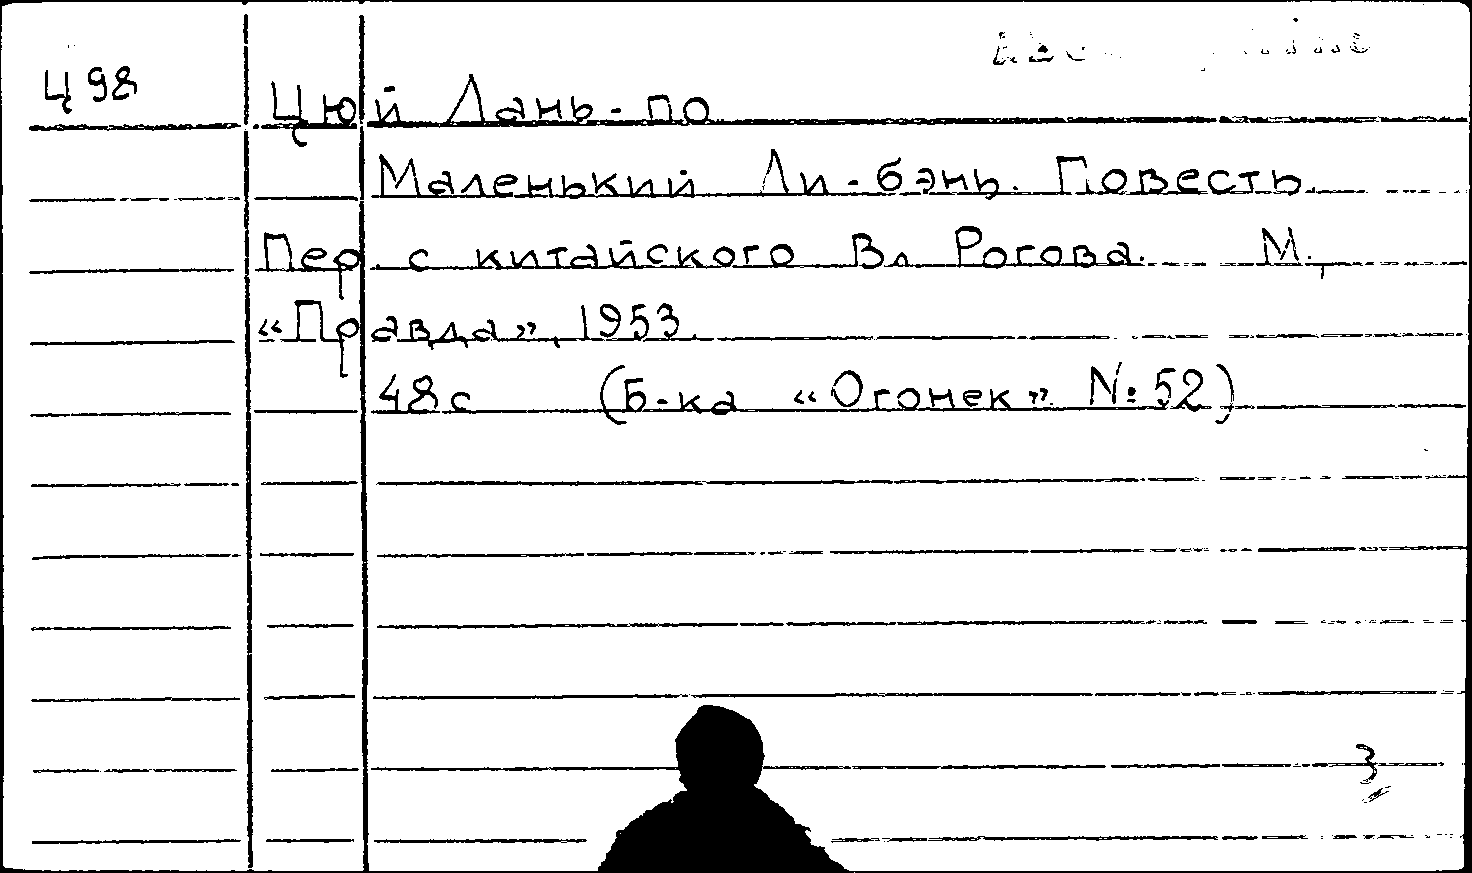 Ц98
Цюй Лань-по
Маленький Ли-бэнь. Повесть.
Пер. с китайского Вл Рогова. М.,
«Правда», 1953.
48с (Б-ка «Огонек» № 52)
3